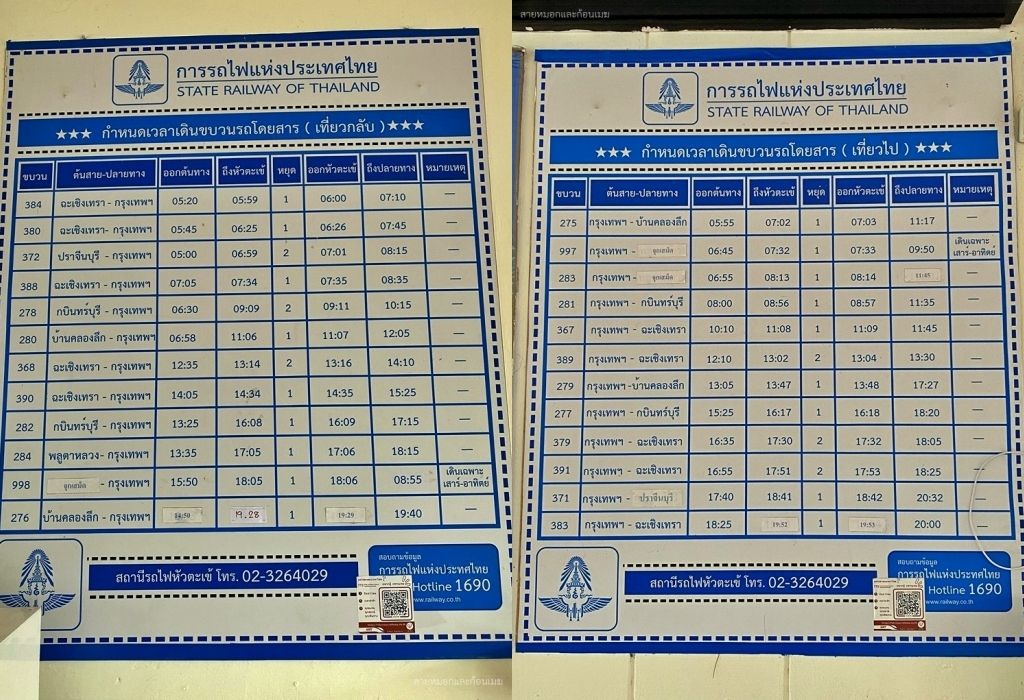 การรถไฟแห่งประเทศไทย
STATE RAILWAY OF THAILAND
★★★ กำหนดเวลาเดินขบวนรถโดยสาร ( เที่ยวกลับ ) ★★★
ขบวน ต้นสาย-ปลายทาง ออกต้นทาง ถึงหัวตะเข้ หยุด ออกหัวตะเข้ ถึงปลายทาง หมายเหตุ
384 ฉะเชิงเทรา - กรุงเทพฯ 05:20 05:59 1 06:00 07:10 —
380 ฉะเชิงเทรา- กรุงเทพฯ 05:45 06:25 1 06:26 07:45 —
372 ปราจีนบุรี - กรุงเทพฯ 05:00 06:59 2 07:01 08:15 —
388 ฉะเชิงเทรา - กรุงเทพฯ 07:05 07:34 1 07:35 08:35 —
278 กบินทร์บุรี - กรุงเทพฯ 06:30 09:09 2 09:11 10:15 —
280 บ้านคลองลึก - กรุงเทพฯ 06:58 11:06 1 11:07 12:05 —
368 ฉะเชิงเทรา - กรุงเทพฯ 12:35 13:14 2 13:16 14:10 —
390 ฉะเชิงเทรา - กรุงเทพฯ 14:05 14:34 1 14:35 15:25 —
282 กบินทร์บุรี - กรุงเทพฯ 13:25 16:08 1 16:09 17:15 —
284 พลูตาหลวง- กรุงเทพฯ 13:35 17:05 1 17:06 18:15 —
998 จุกเสม็ด - กรุงเทพฯ 15:50 18:05 1 18:06 08:55 เดินเฉพาะ เสาร์-อาทิตย์
276 บ้านคลองลึก - กรุงเทพฯ 14:50 19.28 1 19:29 19:40 —
สถานีรถไฟหัวตะเข้ โทร. 02-3264029
สอบถามข้อมูล
การรถไฟแห่งประเทศไทย
Hotline 1690
www.railway.co.th
สายหมอกและก้อนเมฆ
สายหมอกและก้อนเมฆ
การรถไฟแห่งประเทศไทย
STATE RAILWAY OF THAILAND
★★★ กำหนดเวลาเดินขบวนรถโดยสาร ( เที่ยวไป ) ★★★
ขบวน ต้นสาย-ปลายทาง ออกต้นทาง ถึงหัวตะเข้ หยุด ออกหัวตะเข้ ถึงปลายทาง หมายเหตุ
275 กรุงเทพฯ - บ้านคลองลึก 05:55 07:02 1 07:03 11:17 —
997 กรุงเทพฯ - จุกเสม็ด 06:45 07:32 1 07:33 09:50 เดินเฉพาะ เสาร์-อาทิตย์
283 กรุงเทพฯ - จุกเสม็ด 06:55 08:13 1 08:14 11:45 —
281 กรุงเทพฯ - กบินทร์บุรี 08:00 08:56 1 08:57 11:35 —
367 กรุงเทพฯ - ฉะเชิงเทรา 10:10 11:08 1 11:09 11:45 —
389 กรุงเทพฯ - ฉะเชิงเทรา 12:10 13:02 2 13:04 13:30 —
279 กรุงเทพฯ -บ้านคลองลึก 13:05 13:47 1 13:48 17:27 —
277 กรุงเทพฯ - กบินทร์บุรี 15:25 16:17 1 16:18 18:20 —
379 กรุงเทพฯ - ฉะเชิงเทรา 16:35 17:30 2 17:32 18:05 —
391 กรุงเทพฯ - ฉะเชิงเทรา 16:55 17:51 2 17:53 18:25 —
371 กรุงเทพฯ - ปราจีนบุรี 17:40 18:41 1 18:42 20:32 —
383 กรุงเทพฯ - ฉะเชิงเทรา 18:25 19:52 1 19:53 20:00 —
สถานีรถไฟหัวตะเข้ โทร. 02-3264029
สอบถามข้อมูล
การรถไฟแห่งประเทศไทย
Hotline 1690
www.railway.co.th